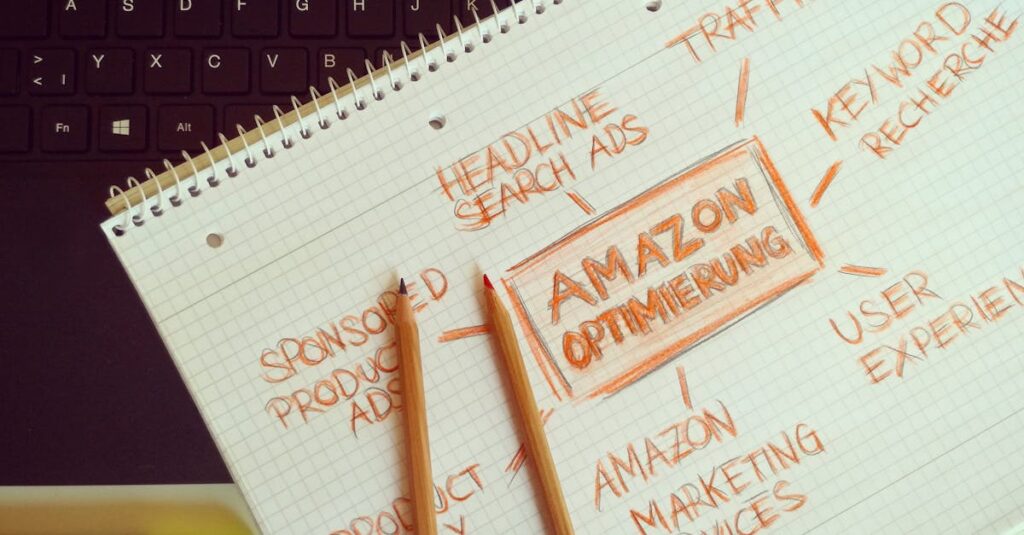 A S D F G H J K
Y X C V B
Fn Alt
TRAFFI
KEYWORD
RECHERCHE
HEADLINE
SEARCH ADS
AMAZON
OPTIMIERUNG
USER
EXPERIEN
SPONSORED
PRODUCT
ADS
AMAZON
MARKETING
VICES
PRODUCT